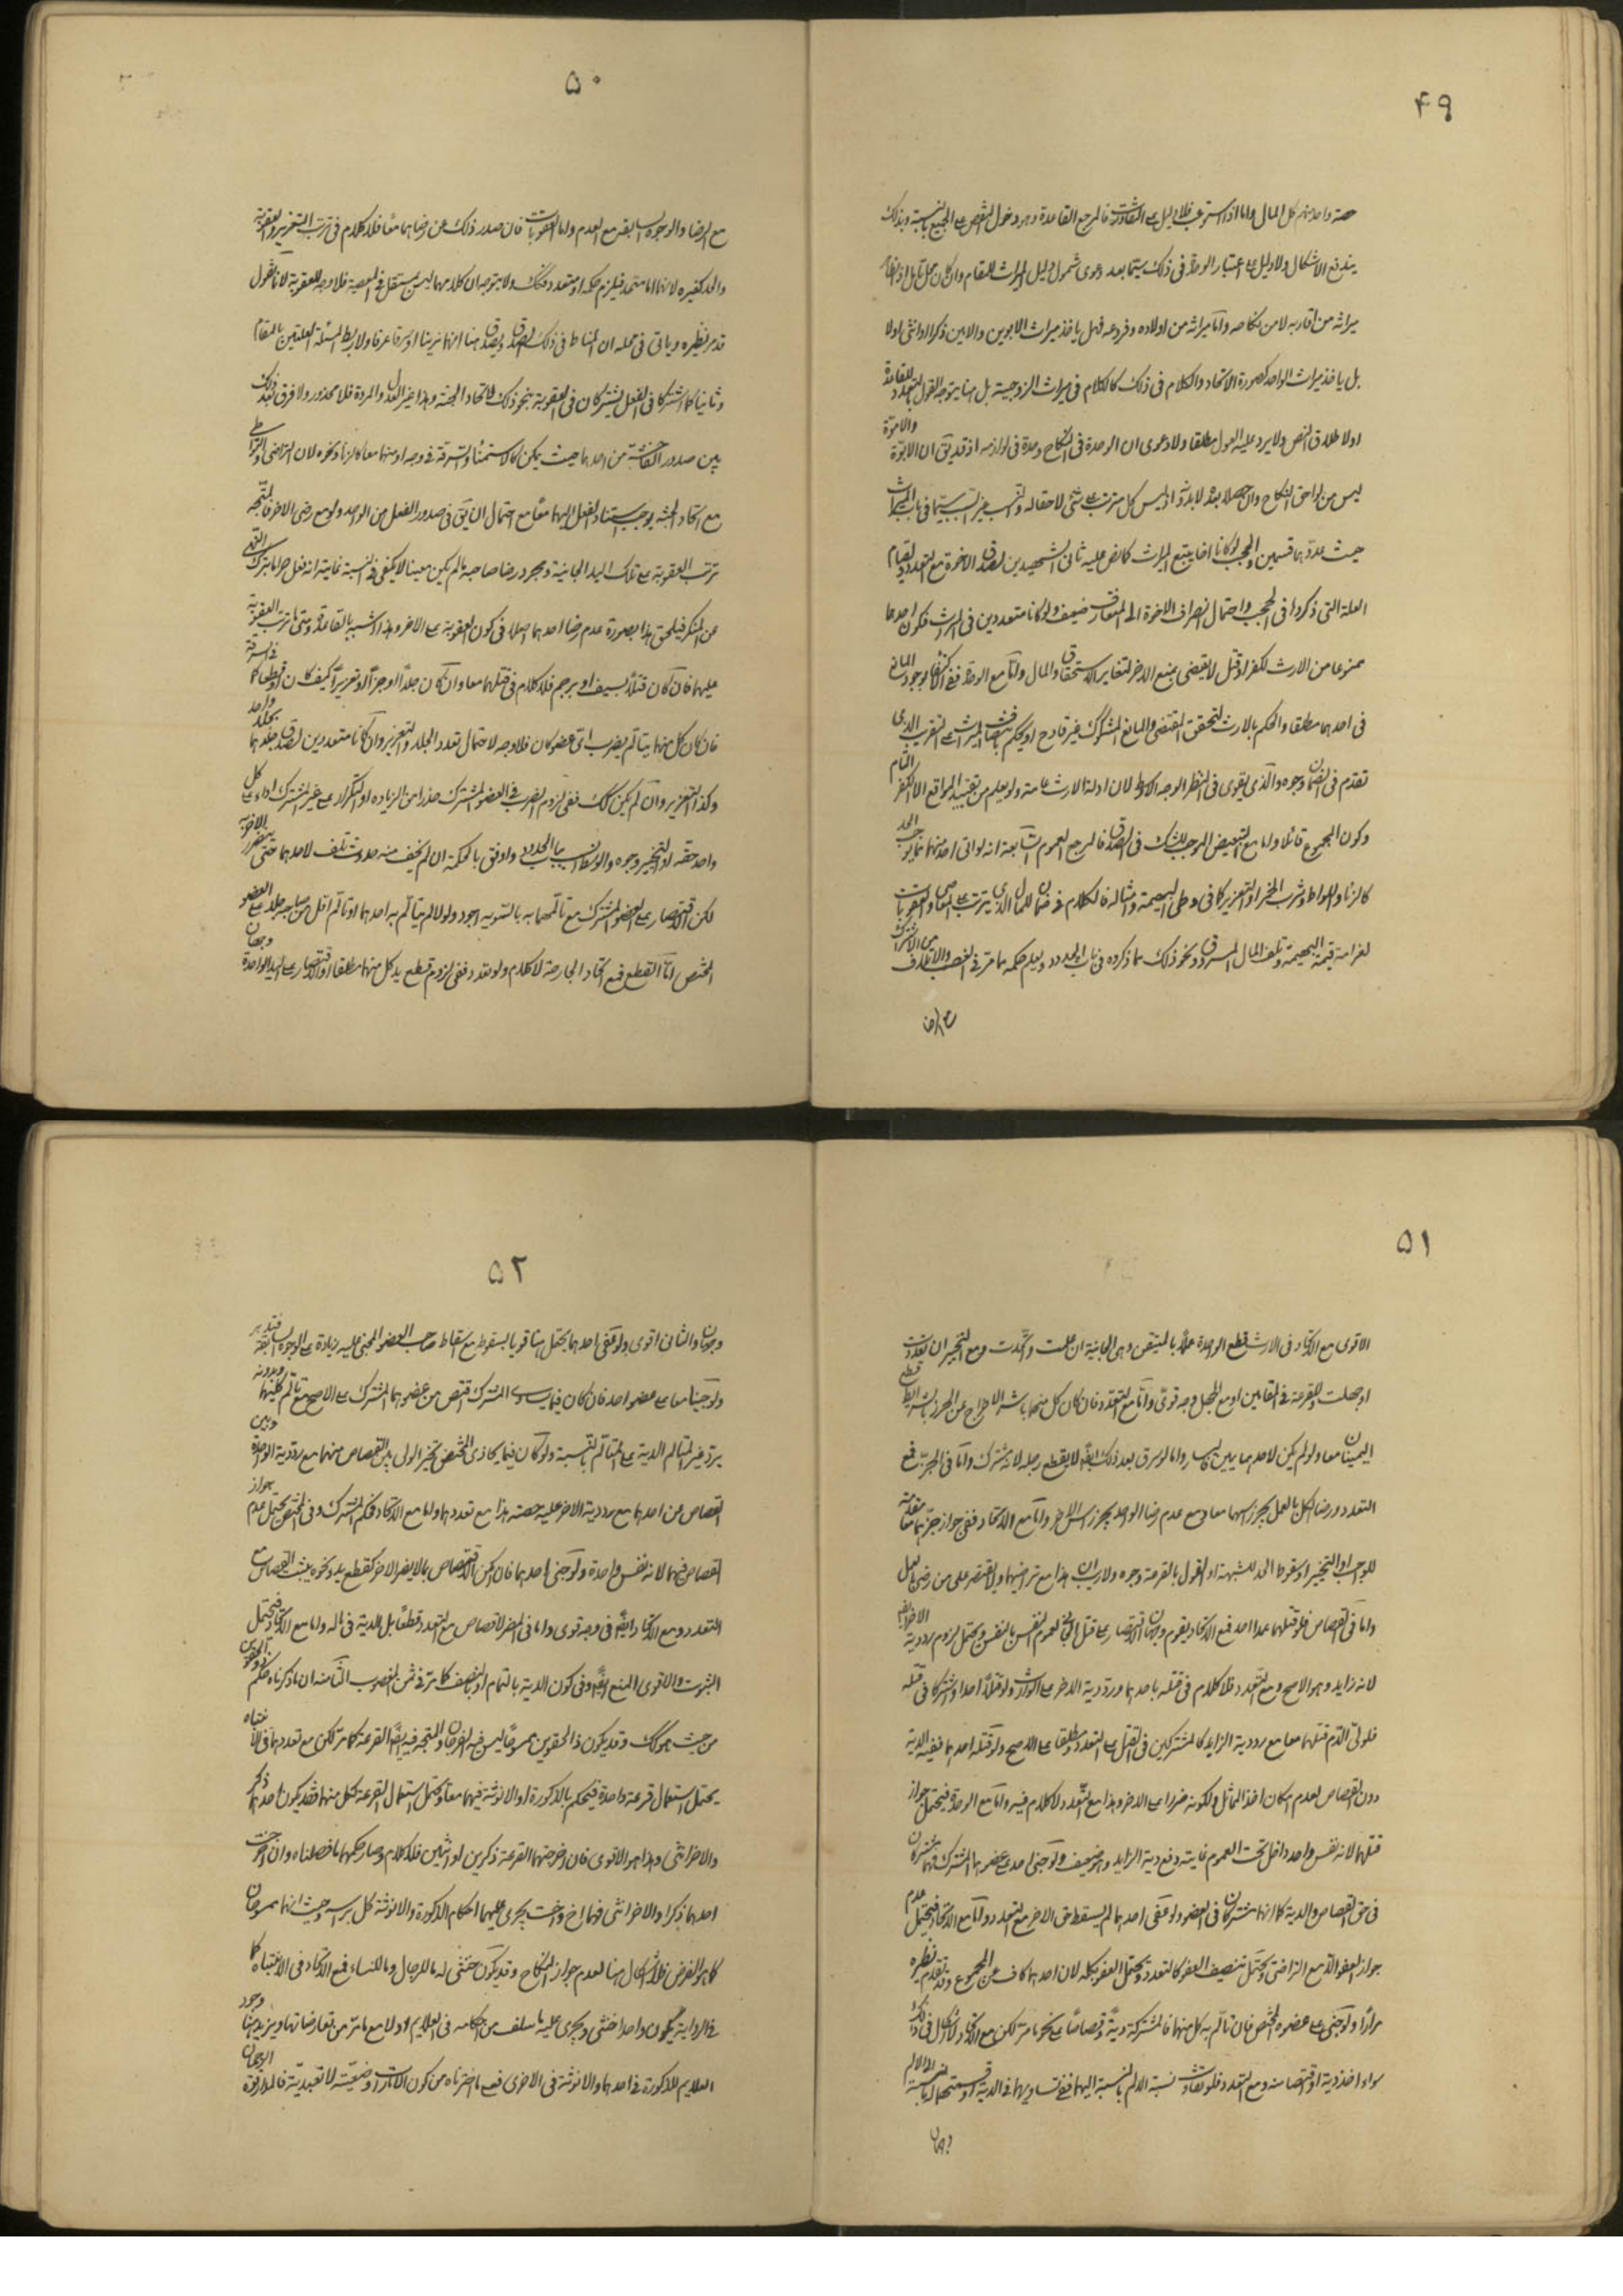 ۴۹
حصة واحد منهم كل المال واما اذا استوعب فلا دليل على التفاوت فالمرجع القاعدة وهو دخول النقص على الجميع بالنسبة وبذلك
يندفع الاشكال ولا دليل على اعتبار الوحدة فى ذلك سيما بعد دعوى شمول دليل الميراث للمقام وان كان محل تامل او نظر
ميراثه من اقاربه لا من نكاحه واما ميراثه من اولاده وفروعه فهل ياخذ ميراث الابوين والابن ذكرا او انثى اولا
بل ياخذ ميراث الواحد كصورة الاتحاد والكلام فى ذلك كالكلام فى ميراث الزوجية بل هنا يتوجه القول بالتعدد للقاعدة
اولا طلاق النص ولا يرد عليه العول مطلقا ولا دعوى ان الوحدة فى النكاح وحدة فى لوازمه اذ قد يق ان الابوة والامومة
ليس من لواحق النكاح وان حصلا بعده لابد اذ ليس كل مترتب على شئ لاحقا له
حيث عدهما قسمين والحجب لو كانا اخا يتبع الميراث كما نص عليه ثانى الشهيدين لصدق الاخوة مع التعدد ولقيام
العلة التى ذكروا فى الحجب واحتمال انصراف الاخوة الى المتعارف ضعيف ولو كانا متعددين فى الارث فكون احدهما
ممنوعا من الارث لكفر او قتل لا يقتضى بمنع الاخر لتغاير الاستحقاق والمال واما مع الوحدة ففى لوجود المانع
فى احدهما مطلقا والحكم بالارث لتحقق المقتضى والمانع المشكوك غير قادح او يحكم بنصف الميراث على التقريب الذى
تقدم فى الضمان وجوه والذى يقوى فى النظر الوجه الاوسط لان ادلة الارث عامة ولم يعلم من تقييد الموانع الا الكفر التام
وكون المجموع قاتلا واما مع التبعيض الموجب للشك فى الصدق فالمرجع العموم السابعة انه لو اتى احد منهما بما يوجب الحد
كالزنا واللواط وشرب الخمر او التعزير كما فى وطى البهيمة وامثاله فالكلام فى ضمان المال الذى يترتب على المعاصى والعقوبات
لغرامة قيمة البهيمة وتلف المال المسروق ونحو ذلك مما ذكروه فى باب الحدود ويعلم حكمه مما مر فى الغصب والاتلاف من الاشتراك
۵۰
مع الرضا والوجوه السابقه مع العدم واما العقوبات فان صدر ذلك عن رضاهما معا فلا كلام فى ترتب التعزير والعقوبة
والحد كغيره لانهما اما متحد فيلزم حكمه او متعدد فكك ولا يتوجه ان كلا منهما ليس بمستقل فى المعصية فلا وجه للعقوبة لانا نقول
قد مر نظيره وياتى فى محله ان المناط فى ذلك الصدق ويصدق هنا انهما زنيا او سرقا عرفا ولا ربط لمسئلة العلتين بالمقام
وثانيا كما اشتركا فى الفعل يشتركان فى العقوبة بنحو ذلك لاتحاد الجثة وهذا غير المردة فلا محذور ولا فرق بعد ذلك
بين صدور الفاحشة من احدهما حيث يمكن كالاستمناء والسرقة فى وجه او منهما معا كالزنا ونحوه لان التراضى والتواطى
مع اتحاد الجثة يوجب استناد الفعل اليهما معا مع احتمال ان يق فى صدور الفعل من الواحد ولو مع رضى الاخر فالمتجه
ترتب العقوبة على تلك اليد الجانية ومجرد رضا صاحبه ما لم يكن معينا لا يكفى فى النسبة غايته انه فعل حراما بترك النهى
عن المنكر فيلحق هذا بصورة عدم رضا احدهما اصلا فى كون العقوبة على الاخر وهذا اشبه بالقاعدة ومتى ما ترتب العقوبة
عليهما فان كان قتلا بسيف او برجم فلا كلام فى قتلهما معا وان كان جلدا او جزا او تعزيرا كيف كان او قطعا كما فى السرقة
فان كان كل منهما يتالم بضرب اى عضو كان فلا وجه لاحتمال تعدد الجلد والتعزير وان كانا متعددين لصدق جلدهما بجلد واحد
وكذا التعزير وان لم يكن كك ففى لزوم الضرب فى العضو المشترك حذرا من الزيادة او التكرار على غير المشترك اداء على كل
واحد حقه او التخيير وجوه والوسط انسب بباب الحدود واوفق بالحكمة ان لم يخف منه حدوث تلف لاحدهما حتى يتضرر الاخر به
لكن الاقتصار على العضو المشترك مع تالمهما به بالسوية اجود ولو لم يتالم به احدهما او تالم اقل من صاحبه جلد على العضو
المختص اما القطع فمع اتحاد الجارحة لا كلام ولو تعدد ففى لزوم قطع يد كل منهما مطلقا او الاقتصار على اليد الواحدة وجهان
۵۱
الاقوى مع الاتحاد فى الارث قطع الواحدة عملا بالمتيقن وهى الجانية ان علمت واتحدت ومع التخيير ان تعددت
او جهلت والقرعة فى المقامين او مع الجهل وجه قوى واما مع التعدد فان كان كل منهما باشر الاخراج عن الحرز بالشرايط قطع
اليمينان معا ولو لم يكن لاحدهما يمين يسار واما لو سرق بعد ذلك ايضا لا يقطع رجله لانه مشترك واما فى الحر مع
التعدد ورضا الكل بالعمل يجوز اسهما معا ومع عدم رضا الواحد واما مع الاتحاد ففى جواز جزهما معا مقدمة
للواجب او التخيير او سقوط الحد للشبهة او القول بالقرعة وجوه ولا ريب ان هذا مع تراضيهما ويقتصر على من رضى بالعمل
واما فى القصاص فلو قتلهما عمدا احد فمع الاتحاد يقوم وجهان الاقتصار على قتل الجانى لعموم النفس بالنفس ويحتمل لزوم رد دية الاخر ايضا
لانه زايد وهو الاصح ومع التعدد فلا كلام فى قتله باحدهما ورد دية الاخر على الوارث ولو قتلا احدا واشتركا فى قتله
فلولى الدم قتلهما معا مع رد دية الزايد كالمشتركين فى القتل على التعدد ومطلقا على الاصح ولو قتله احدهما ففيه الدية
دون القصاص لعدم امكان اخذ المماثل ولكونه ضررا على الاخر وهذا مع التعدد لا كلام فيه واما مع الوحدة فيحتمل جواز
قتلهما لانه نفس واحد داخل تحت العموم غايته دفع دية الزايد وهو ضعيف ولو جنى احد على عضوهما المشترك فهما مشتركان
فى حق القصاص والدية كما انهما مشتركان فى العضو ولو عفى احدهما لم يسقط حق الاخر مع التعدد واما مع الاتحاد فيحتمل عدم
جواز العفو الا مع التراضى ويحتمل تنصيف العفو كالتعدد ويحتمل العفو بكله لان احدهما كاف عن المجموع وقد تقدم نظيره
مرارا ولو جنى على عضوه المختص فان تالم به كل منهما فالمشتركة دية وقصاصا على نحو ما مر لكن مع الاتحاد لا اشكال فى ذلك
سواء اخذ دية او قصاصا منه ومع التعدد فلو تفاوت نسبة الالم بالنسبة اليهما ففى تساويهما فى الدية او قسمتها بالنسبة الى الالم
وجهان
۵۲
وجهان والثانى اقوى ولو عفى احدهما يحتمل هنا قويا بسقوط مع اسقاط صاحب العضو المجنى عليه زيادة على الوجوه السابقة فتدبر
ولو جنيا معا على عضو احد فان كان فيما يساوى المشترك اقتص من عضوهما المشترك على الاصح مع تالم كليهما وبدونه
يرد غير المتالم الدية على المتالم بالنسبة ولو كان فيما يحاذى المختص تخير الولى بين القصاص منهما مع رد دية الواحدة وبين
القصاص من احدهما مع رد دية الاخر عليه حصته هذا مع تعددهما واما مع الاتحاد فحكم المشترك وفى المختص يحتمل عدم جواز
القصاص فيهما لانه نفس واحدة ولو جنى احدهما فان امكن الاقتصاص بما لا يضر الاخر كقطع يد ونحوه يثبت القصاص مع
التعدد ومع الاتحاد ايضا فى وجه قوى واما فى المضر لا قصاص مع التعدد قطعا بل الدية فى ماله واما مع الاتحاد فيحتمل
الثبوت والاقوى المنع ايضا وفى كون الدية بالتمام او بالنصف كما مر فى ثمن المغصوب الثامنه ان ما ذكرناه حكم ذى الحقوين
من حيث هو كك وقد يكون ذا الحقوين ممسوحا ليس فيه الفرجان والمتجه فيه ايضا القرعة كما مر لكن مع تعددهما فى الانتباه
يحتمل استعمال قرعة واحدة فيحكم بالذكورة او الانوثة فيهما معا ويحتمل استعمال القرعة لكل منهما فقد يكون احدهما ذكر
والاخر انثى وهذا هو الاقوى فان اخرجتهما القرعة ذكرين او انثيين فلا كلام وصار حكمهما ما فصلناه وان اخرجت
احدهما ذكرا والاخر انثى فهما اخ واخت يجرى عليهما احكام الذكورة والانوثة كل براسه وحيث انهما ممسوحان
كما هو الفرض فلا اشكال هنا لعدم جواز النكاح وقد يكون خنثى له ما للرجال وما للنساء فمع الاتحاد فى الانتباه كما
فى الرواية يكون واحدا خنثى ويجرى عليه ما سلف من احكامه فى العلايم اولا مع ما مر من تعارضاتها ويزيد هنا وجود
العلايم للذكورة فى احدهما والانوثة فى الاخرى فعلى ما اخترناه من كون الامارات وضعية لا تعبدية فالمدار قوة الرجحان